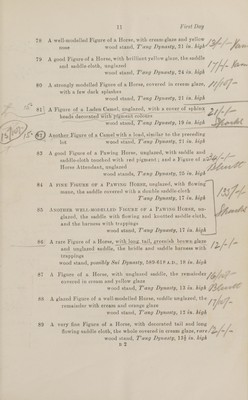 11 First Day
78 A well-modelled Figure of a Horse, with cream glaze and yellow
nose wood stand, T'ang Dynasty, 31 in. high
79 A good Figure of a Horse, with brilliant yellow glaze, the saddle
and saddle-cloth, unglazed
wood stand, T'ang Dynasty, 24 in. high
80 A strongly modelled Figure of a Horse, covered in cream glaze,
with a few dark splashes
wood stand, T'ang Dynasty, 31 in. high
81 A Figure of a Laden Camel, unglazed, with a cover of
heads decorated with pigment colours
wood stand, T'ang Dynasty, 19 in. high
82 Another Figure of a Camel with a load, similar to the preceding
lot wood stand, T'ang Dynasty, 21 in. high
83 A good Figure of a Pawing Horse, unglazed, with saddle and
saddle-cloth touched with red pigment; and a Figure of a
Horse Attendant, unglazed
wood stands, T'ang Dynasty, 25 in. high
84 A fine Figure of a Pawing Horse, unglazed, with flowing
mane, the saddle covered with a double saddle-cloth
T'ang Dynasty, 17 in. high
85 Another well-modelled Figure of a Pawing Horse, un-
glazed, the saddle with flowing and knotted saddle-cloth,
and the harness with trappings
wood stand, T'ang Dynasty, 17 in. high
86 A rare Figure of a Horse, with long tail, greenish brown glaze
and unglazed saddle, the bridle and saddle harness with
trappings
wood stand, possibly Sui Dynasty, 589-618 A.D., 19 in. high
87 A Figure of a Horse, with unglazed saddle, the remainder
covered in cream and yellow glaze
wood stand, T'ang Dynasty, 13 in. high
88 A glazed Figure of a well-modelled Horse, saddle unglazed, the
remainder with cream and orange glaze
wood stand, T'ang Dynasty, 12 in. high
89 A very fine Figure of a Horse, with decorated tail and long
flowing saddle cloth, the whole covered in cream glaze, rare
wood stand, T'ang Dynasty, 19½ in. high